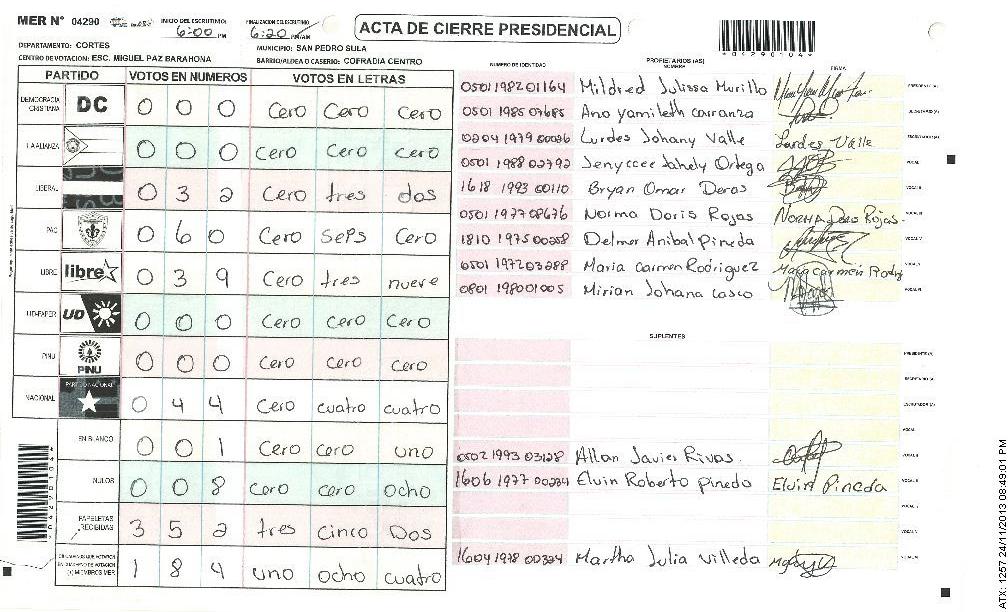 MER N° 04290
INICIO DEL ESCRUTINIO: 6:00 PM
FINALIZACION DEL ESCRUTINIO: 6:20 PM/AM
ACTA DE CIERRE PRESIDENCIAL
*04290104*
DEPARTAMENTO: CORTES
MUNICIPIO: SAN PEDRO SULA
CENTRO DE VOTACION: ESC. MIGUEL PAZ BARAHONA
BARRIO/ALDEA O CASERIO: COFRADIA CENTRO
PARTIDO VOTOS EN NUMEROS VOTOS EN LETRAS
DEMOCRACIA CRISTIANA DC 0 0 0 Cero Cero Cero
LA ALIANZA 0 0 0 Cero Cero Cero
LIBERAL 0 3 2 Cero tres dos
PAC 0 6 0 Cero Seps Cero
LIBRE libre 0 3 9 Cero tres nueve
UD-FAPER UD 0 0 0 Cero Cero Cero
PINU PINU 0 0 0 Cero Cero Cero
NACIONAL PARTIDO NACIONAL 0 4 4 Cero cuatro cuatro
EN BLANCO 0 0 1 Cero cero uno
NULOS 0 0 8 cero cero ocho
PAPELETAS RECIBIDAS 3 5 2 tres Cinco Dos
CIUDADANOS QUE VOTARON EN CUADERNO DE VOTACION (+) MIEMBROS MER 1 8 4 uno ocho cuatro
NUMERO DE IDENTIDAD PROPIETARIOS (AS) NOMBRE FIRMA
0501198201164 Mildred Julissa Murillo PRESIDENTE(A)
0501 1985 07685 Ana Yamileth carranza SECRETARIO(A)
0204 1979 00026 Lurdes Johany Valle Lordes Valle ESCRUTADOR(A)
0501 1988 02792 Jenyccee Jahely Ortega VOCAL I
1618 1993 00110 Bryan Omar Deras VOCAL II
0501 1977 08676 Norma Doris Rojas Norma Doris Rojas VOCAL III
1810 1975 00258 Delmer Anibal Pineda VOCAL IV
0501 1972 03288 Maria Carmen Rodriguez Maria Carmen Rodrig VOCAL V
0801 1980 01005 Mirian Johana Casco VOCAL VI
SUPLENTES
PRESIDENTE(A)
SECRETARIO(A)
ESCRUTADOR(A)
VOCAL I
0502 1993 03128 Allan Javier Rivas VOCAL II
1606 1977 00234 Elvin Roberto pineda Elvin Pineda VOCAL III
VOCAL IV
VOCAL V
1604 1978 00324 Martha Julia Villeda VOCAL VI
ATX: 1257 24/11/2013 08:49:01 PM